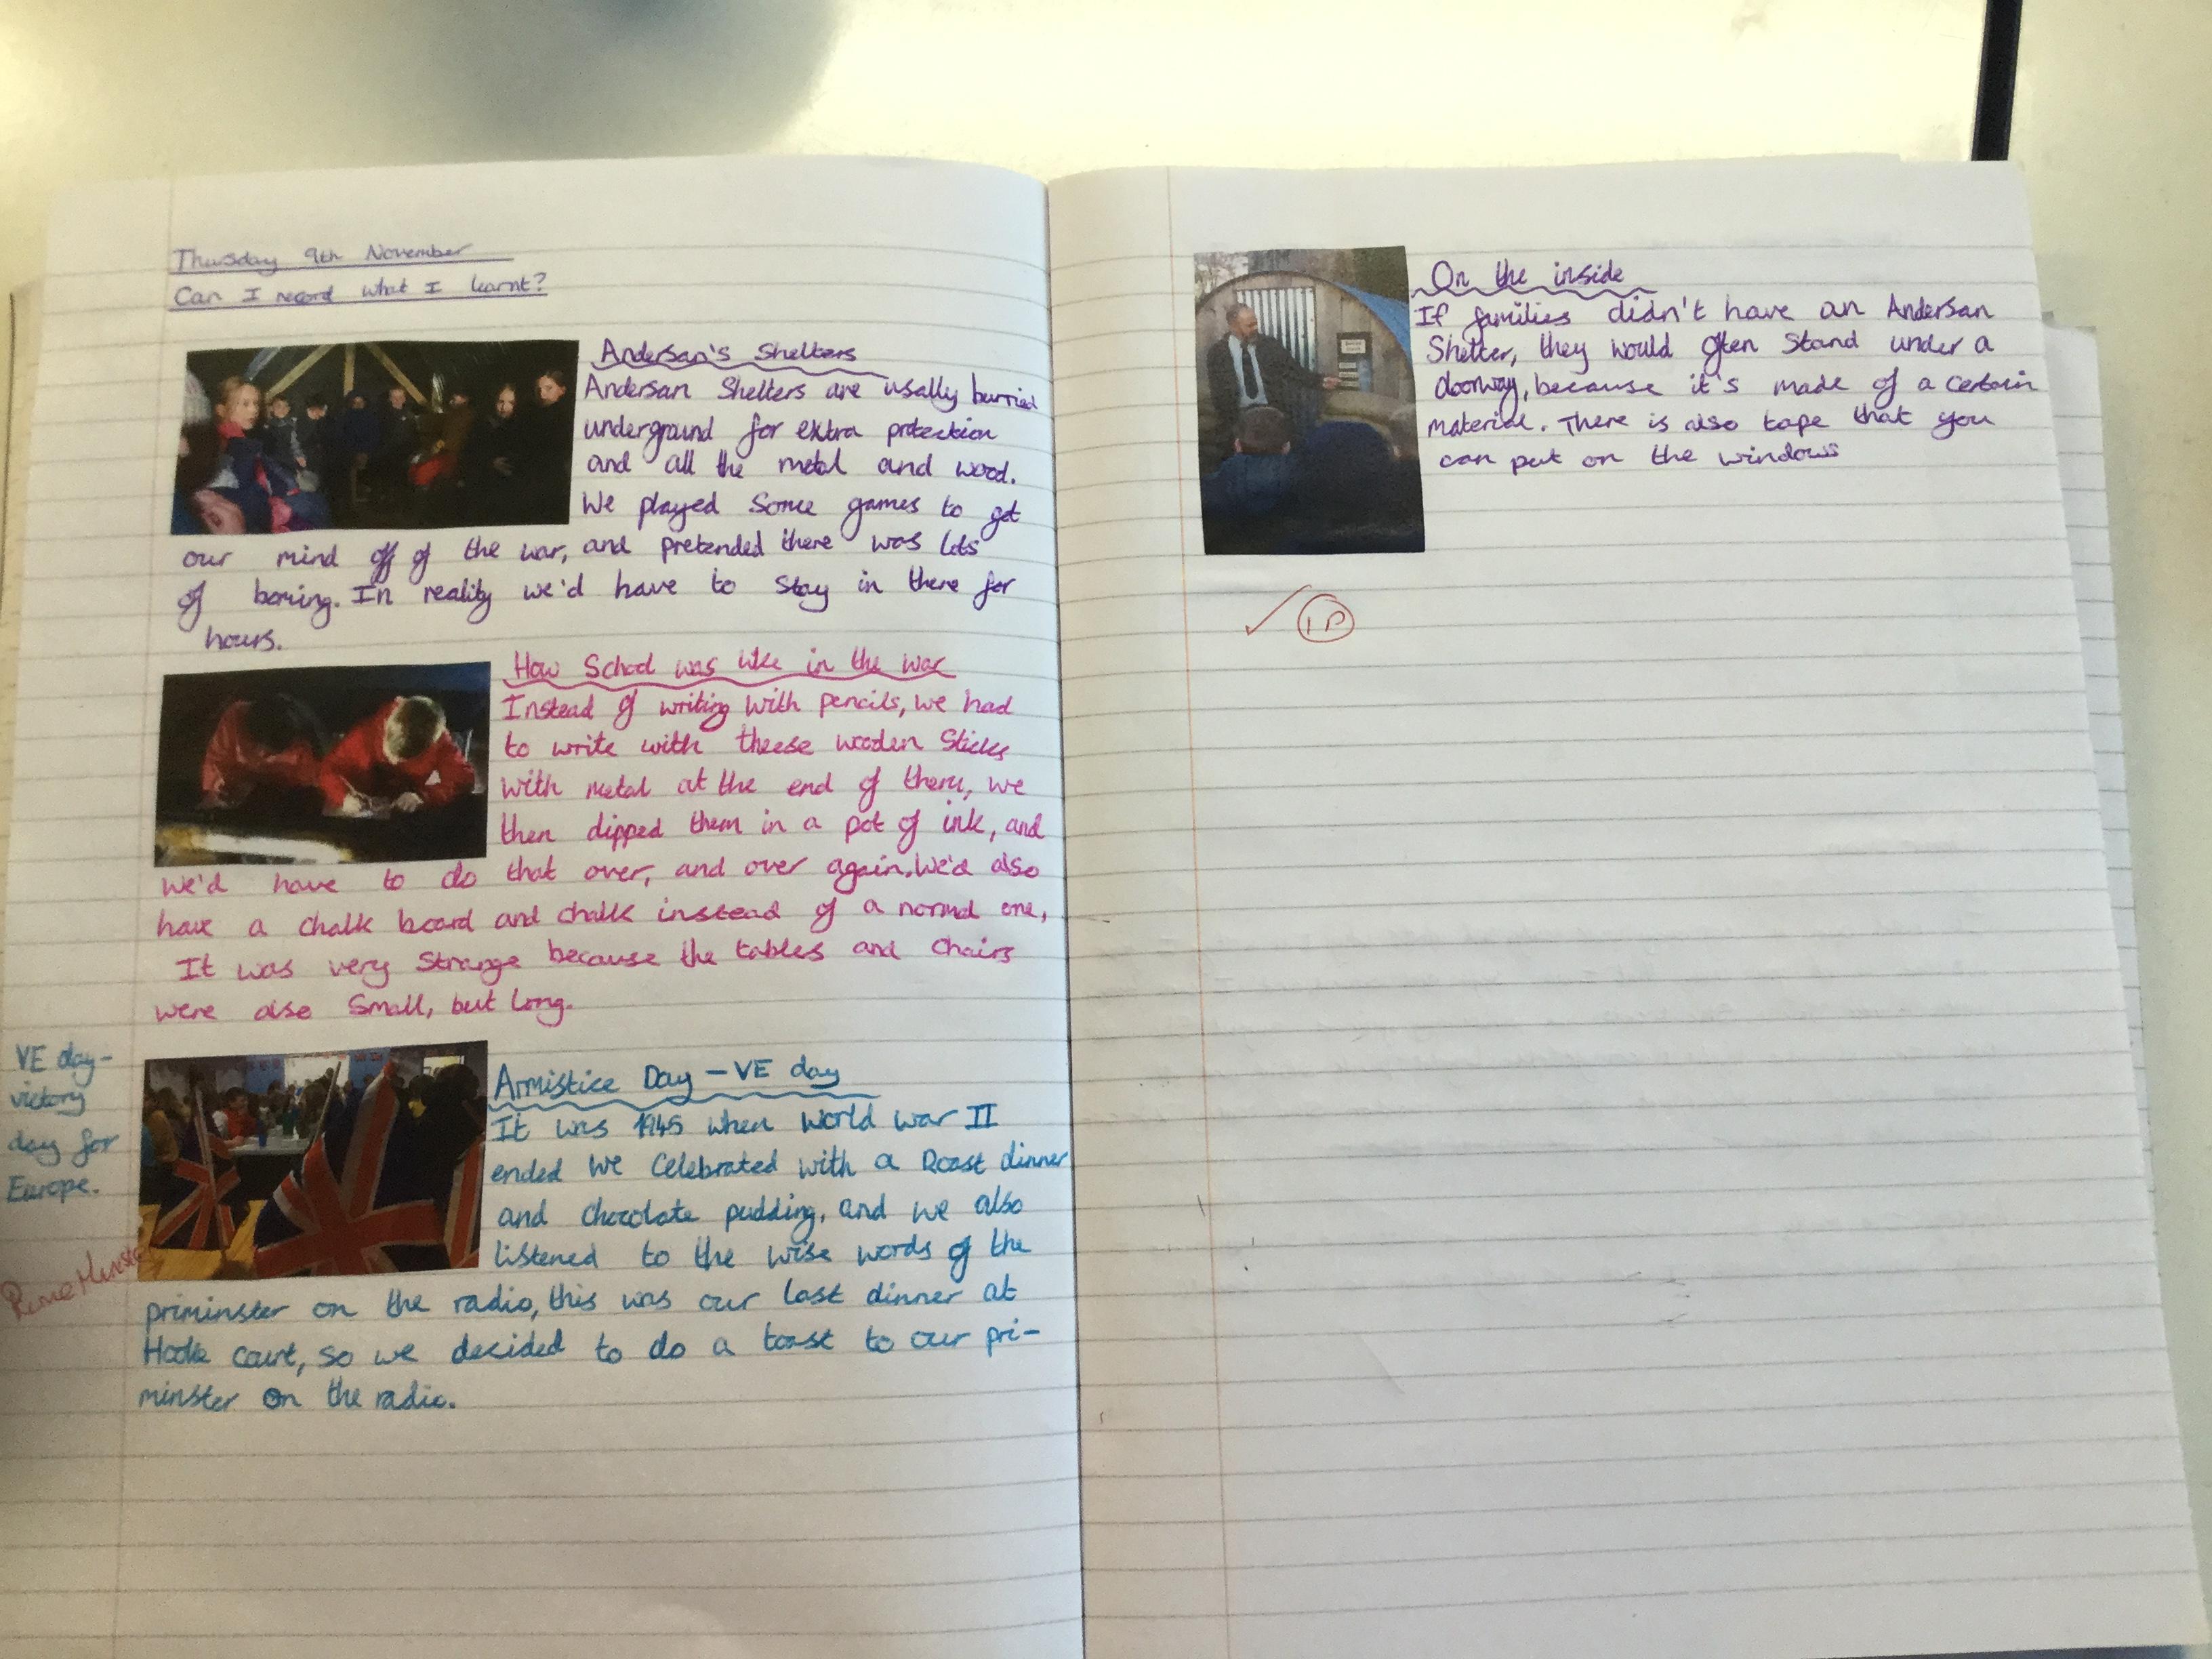 Thursday 9th November
Can I record what I learnt?
Andersan's Shelters
Andersan Shelters are usally burried
underground for extra protection
and all the metal and wood.
We played Some games to get
our mind off of the war, and pretended there was lots
of boming. In reality we'd have to Stay in there for
hours.
How School was like in the war
Instead of writing with pencils, we had
to write with theese wooden Sticks
with metal at the end of them, we
then dipped them in a pot of ink, and
we'd have to do that over, and over again. We'd also
have a chalk board and chalk instead of a normal one,
It was very Strange because the tables and chairs
were also Small, but long.
VE day-
victory
day for
Europe.
Armistice Day - VE day
It was 1945 when World war II
ended we celebrated with a Roast dinner
and chocolate pudding, and we also
listened to the wise words of the
Prime Minister
priminster on the radio, this was our last dinner at
Hooke court, so we decided to do a toast to our pri-
minster on the radio.
On the inside
If families didn't have an Andersan
Shelter, they would often Stand under a
doorway, because it's made of a certain
material. There is also tape that you
can put on the windows